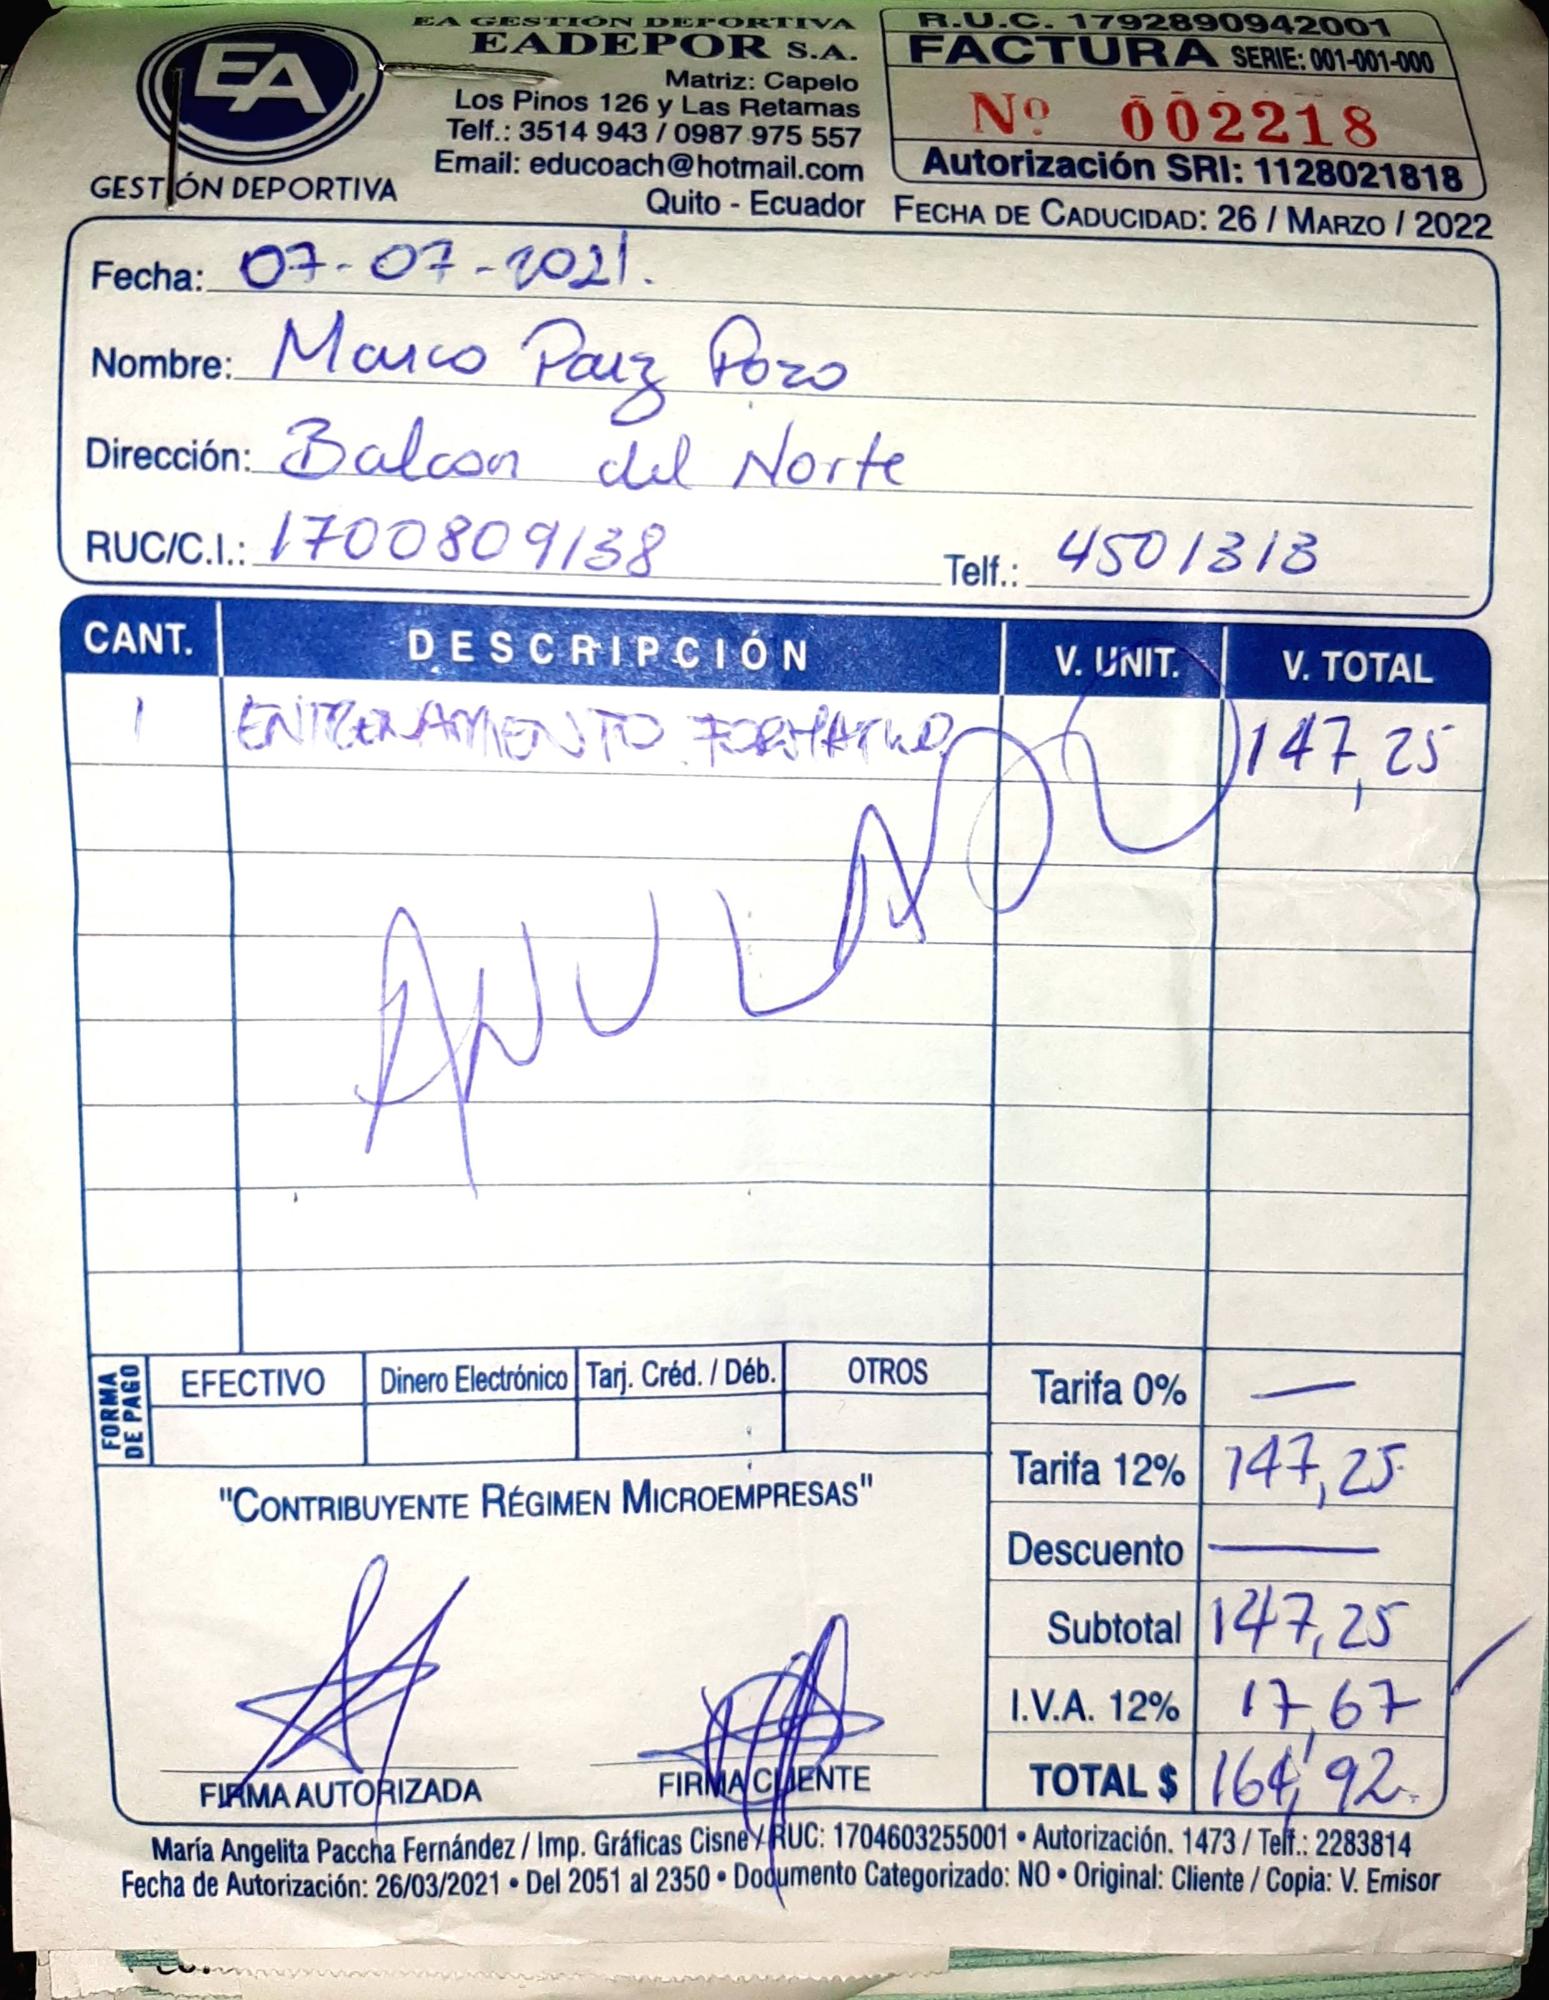 EA GESTIÓN DEPORTIVA
EADEPOR S.A.
Matriz: Capelo
Los Pinos 126 y Las Retamas
Telf.: 3514 943 / 0987 975 557
Email: educoach@hotmail.com
Quito - Ecuador
EA
GESTIÓN DEPORTIVA
R.U.C. 1792890942001
FACTURA SERIE: 001-001-000
Nº 002218
Autorización SRI: 1128021818
FECHA DE CADUCIDAD: 26 / MARZO / 2022
Fecha: 07-07-2021.
Nombre: Marco Paiz Pozo
Dirección: Balcon del Norte
RUC/C.I.: 1700809138 Telf.: 4501313
CANT. DESCRIPCIÓN V. UNIT. V. TOTAL
1 ENTRENAMIENTO FORMATIVO 147,25
ANULADO
FORMA DE PAGO
EFECTIVO Dinero Electrónico Tarj. Créd. / Déb. OTROS
Tarifa 0% —
Tarifa 12% 147,25
Descuento —
Subtotal 147,25
I.V.A. 12% 17,67
TOTAL $ 164,92
"CONTRIBUYENTE RÉGIMEN MICROEMPRESAS"
FIRMA AUTORIZADA FIRMA CLIENTE
María Angelita Paccha Fernández / Imp. Gráficas Cisne / RUC: 1704603255001 • Autorización. 1473 / Telf.: 2283814
Fecha de Autorización: 26/03/2021 • Del 2051 al 2350 • Documento Categorizado: NO • Original: Cliente / Copia: V. Emisor